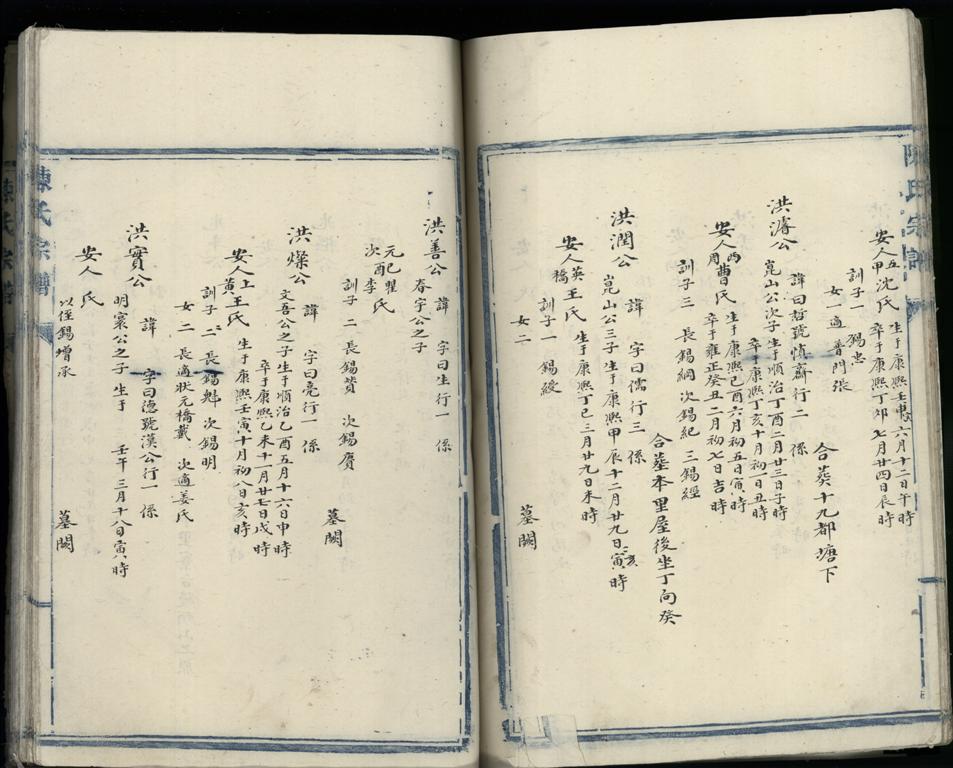 陳氏宗譜
安人五甲沈氏 生于康熙壬申六月十二日午時
卒于康熙丁卯七月廿四日辰時
訓子一 錫忠
女一適普門張
合葵十九都塘下
洪濬公 諱曰哲號慎齋行二 係
崑山公次子生于順治丁酉二月廿三日子時
卒于康熙丁亥十月初一日丑時
安人周曹氏 生于康熙己酉六月初五日寅時
卒于雍正癸丑二月初七日吉時
訓子三 長錫綱 次錫紀 三錫經
合墓本里屋後坐丁向癸
洪潤公 諱 字曰儒行三 係
崑山公三子生于康熙甲辰十二月廿九日寅時
安人英橋王氏 生于康熙丁巳三月廿九日未時
訓子一 錫綬
女二
墓闕
洪善公 諱 字曰生行一 係
春宇公之子
元配瞿氏
次配李
訓子 二 長錫賛 次錫賡
墓闕
洪燦公 諱 字曰亮行一 係
文吾公之子生于順治乙酉五月十六日申時
卒于康熙乙未十一月廿七日戌時
安人上黃王氏 生于康熙壬寅十月初八日亥時
訓子 二 長錫 次錫明
女二 長適狀元橋戴 次適姜氏
洪實公 諱 字曰德號漢公行一 係
明寰公之子 生于 壬午 三月十八日寅時
安人 氏
以侄錫增承
墓闕
陳氏宗譜